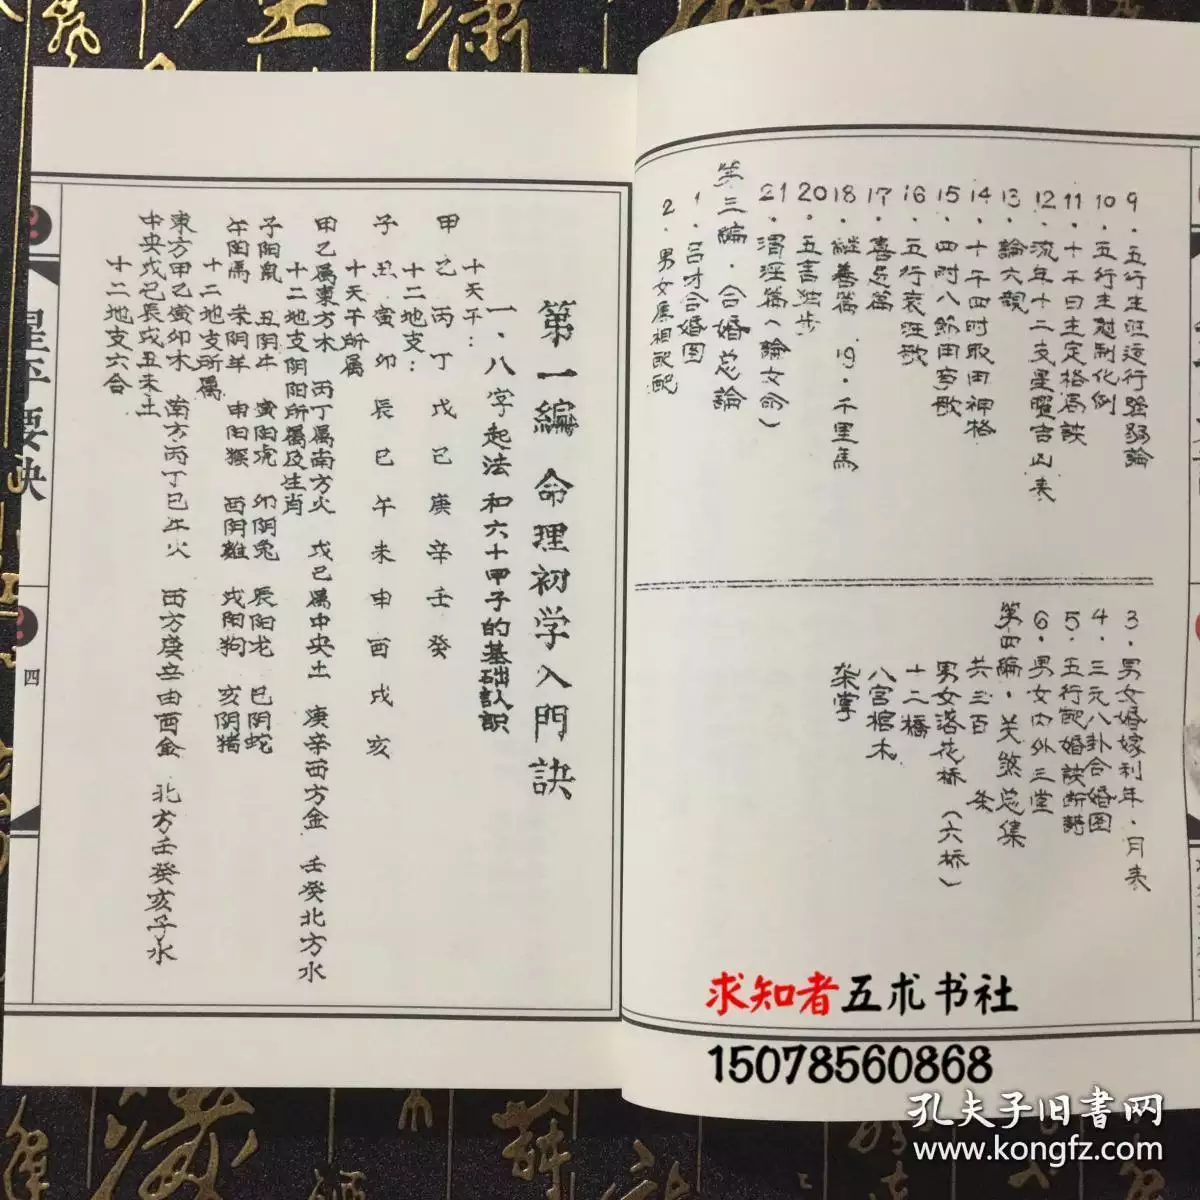 9．五行生旺运行强弱論
10．五行生尅制化例
11．十干日主定格局訣
12．流年十二支星曜吉凶表
13．論六親
14．十干四时取用神格
15．四时八節用事歌
16．五行衰旺歌
17．喜忌篇
18．継善篇　19．千里馬
20．五言独步
21．渭泾篇（論女命）
第三編．合婚总論
1．吕才合婚图
2．男女属相配配
3．男女婚嫁利年．月表
4．三元八卦合婚图
5．五行配婚訣断語
6．男女内外三堂
第四編．关煞总集
共三百　条
男女落花桥（六桥）
十二橋
八宫棺木
架掌
第一編　命理初学入門訣
一．八字起法和六十甲子的基础认识
十天干：
甲乙丙丁戊己庚辛壬癸
十二地支：
子丑寅卯辰巳午未申酉戌亥
十天干所属
甲乙属東方木　丙丁属南方火　戊己属中央土　庚辛西方金　壬癸北方水
十二地支阴阳所属及生肖
子阳鼠　丑阴牛　寅阳虎　卯阴兔　辰阳龙　巳阴蛇
午阳馬　未阴羊　申阳猴　酉阴雞　戌阳狗　亥阴猪
十二地支所属
東方甲乙寅卯木　南方丙丁巳午火　西方庚辛申酉金　北方壬癸亥子水
中央戊己辰戌丑未土
十二地支六合
星平要訣
四
求知者五术书社
15078560868
孔夫子旧書网
www.kongfz.com